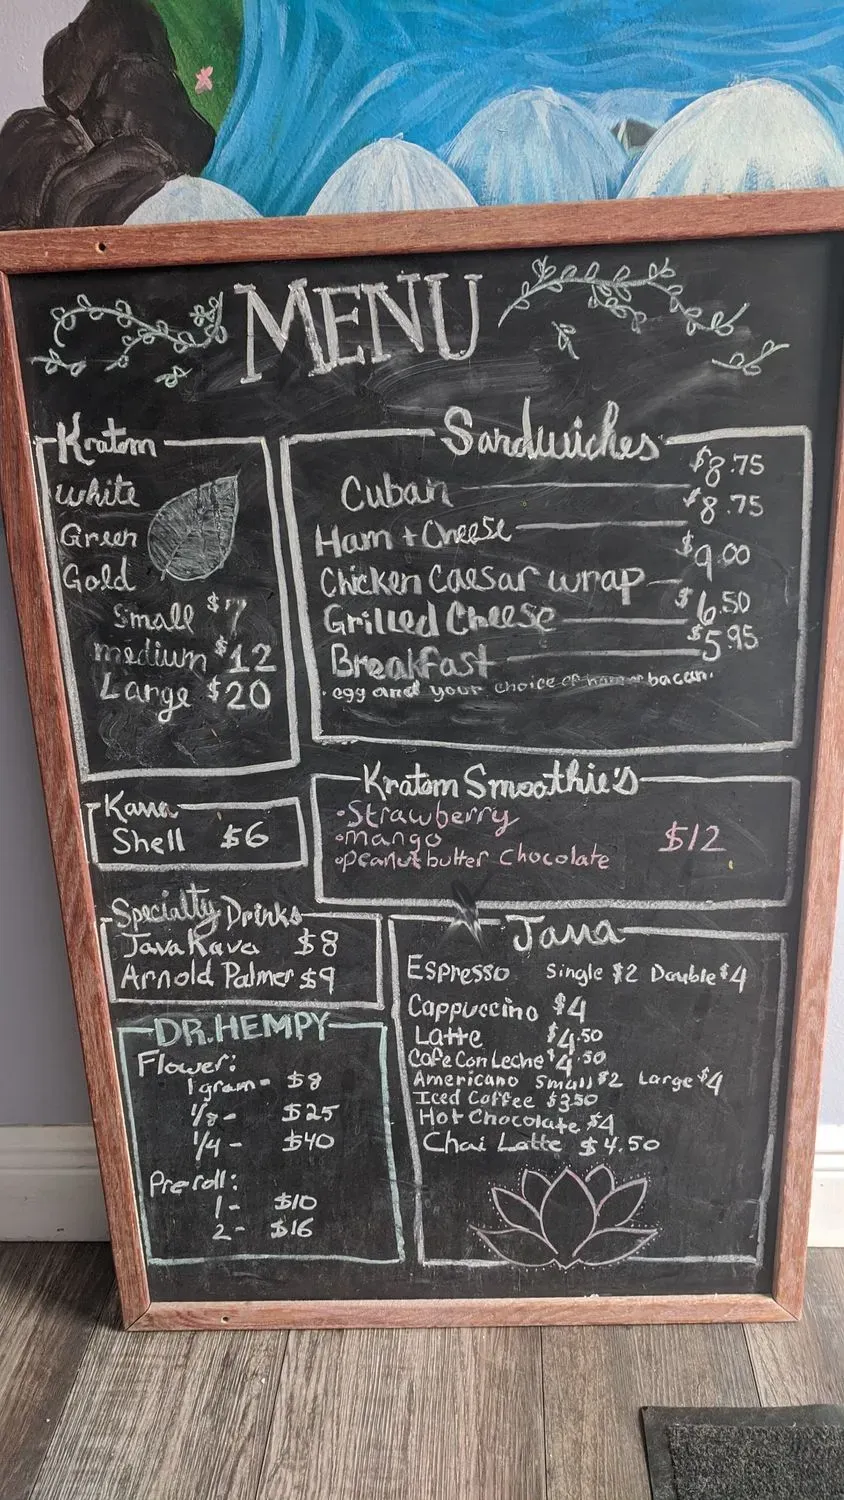 MENU
Kratom
White
Green
Gold
Small $7
medium $12
Large $20
Sandwiches
Cuban $8.75
Ham + Cheese $8.75
Chicken Caesar wrap $9.00
Grilled Cheese $6.50
Breakfast $5.95
• egg and your choice of ham or bacon.
Kava
Shell $6
Kratom Smoothie's
• Strawberry
• mango $12
• peanut butter Chocolate
Specialty Drinks
Java Kava $8
Arnold Palmer $9
DR. HEMPY
Flower:
1 gram - $8
1/8 - $25
1/4 - $40
Pre roll:
1 - $10
2 - $16
Java
Espresso Single $2 Double $4
Cappuccino $4
Latte $4.50
Cafe Con Leche $4.50
Americano Small $2 Large $4
Iced Coffee $3.50
Hot Chocolate $4
Chai Latte $4.50